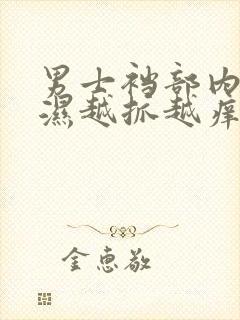 男士裆部内
濕越抓越痒
金惠敬